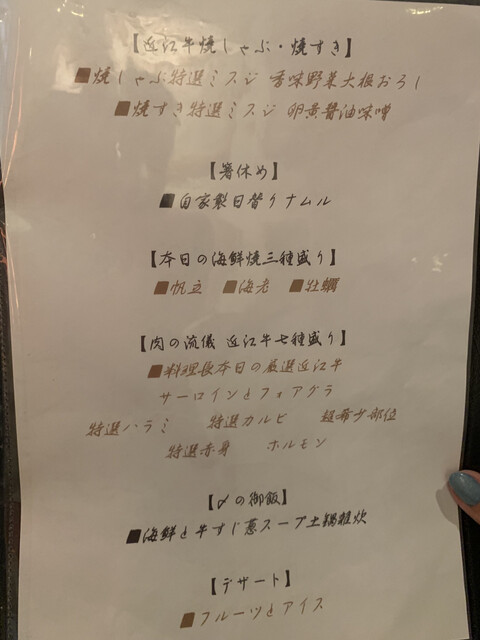 【近江牛焼しゃぶ・焼すき】
■焼しゃぶ特選ミスジ 香味野菜大根おろし
■焼すき特選ミスジ 卵黄醤油味噌
【箸休め】
■自家製日替りナムル
【本日の海鮮焼三種盛り】
■帆立 ■海老 ■牡蠣
【肉の流儀 近江牛七種盛り】
■料理長本日の厳選近江牛
サーロインとフォアグラ
特選ハラミ 特選カルビ 超希少部位
特選赤身 ホルモン
【〆の御飯】
■海鮮と牛すじ葱スープ土鍋雑炊
【デザート】
■フルーツとアイス